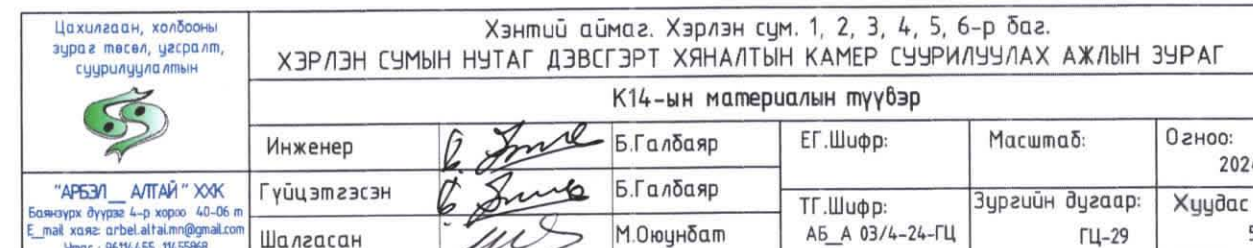 Цахилгаан, холбооны
зураг төсөл, угсралт,
суурилуулалтын
"АРБЭЛ__АЛТАЙ" ХХК
Баянзүрх дүүрэг 4-р хороо 40-06 т
E_mail хаяг: arbel.altai.mn@gmail.com
Хэнтий аймаг. Хэрлэн сум. 1, 2, 3, 4, 5, 6-р баг.
ХЭРЛЭН СУМЫН НУТАГ ДЭВСГЭРТ ХЯНАЛТЫН КАМЕР СУУРИЛУУЛАХ АЖЛЫН ЗУРАГ
К14-ын материалын түүвэр
Инженер
Б.Галбаяр
ЕГ.Шифр:
Масштаб:
Огноо:
Гүйцэтгэсэн
Б.Галбаяр
ТГ.Шифр:
АБ_А 03/4-24-ГЦ
Зургийн дугаар:
ГЦ-29
Хуудас
Шалгасан
М.Оюунбат